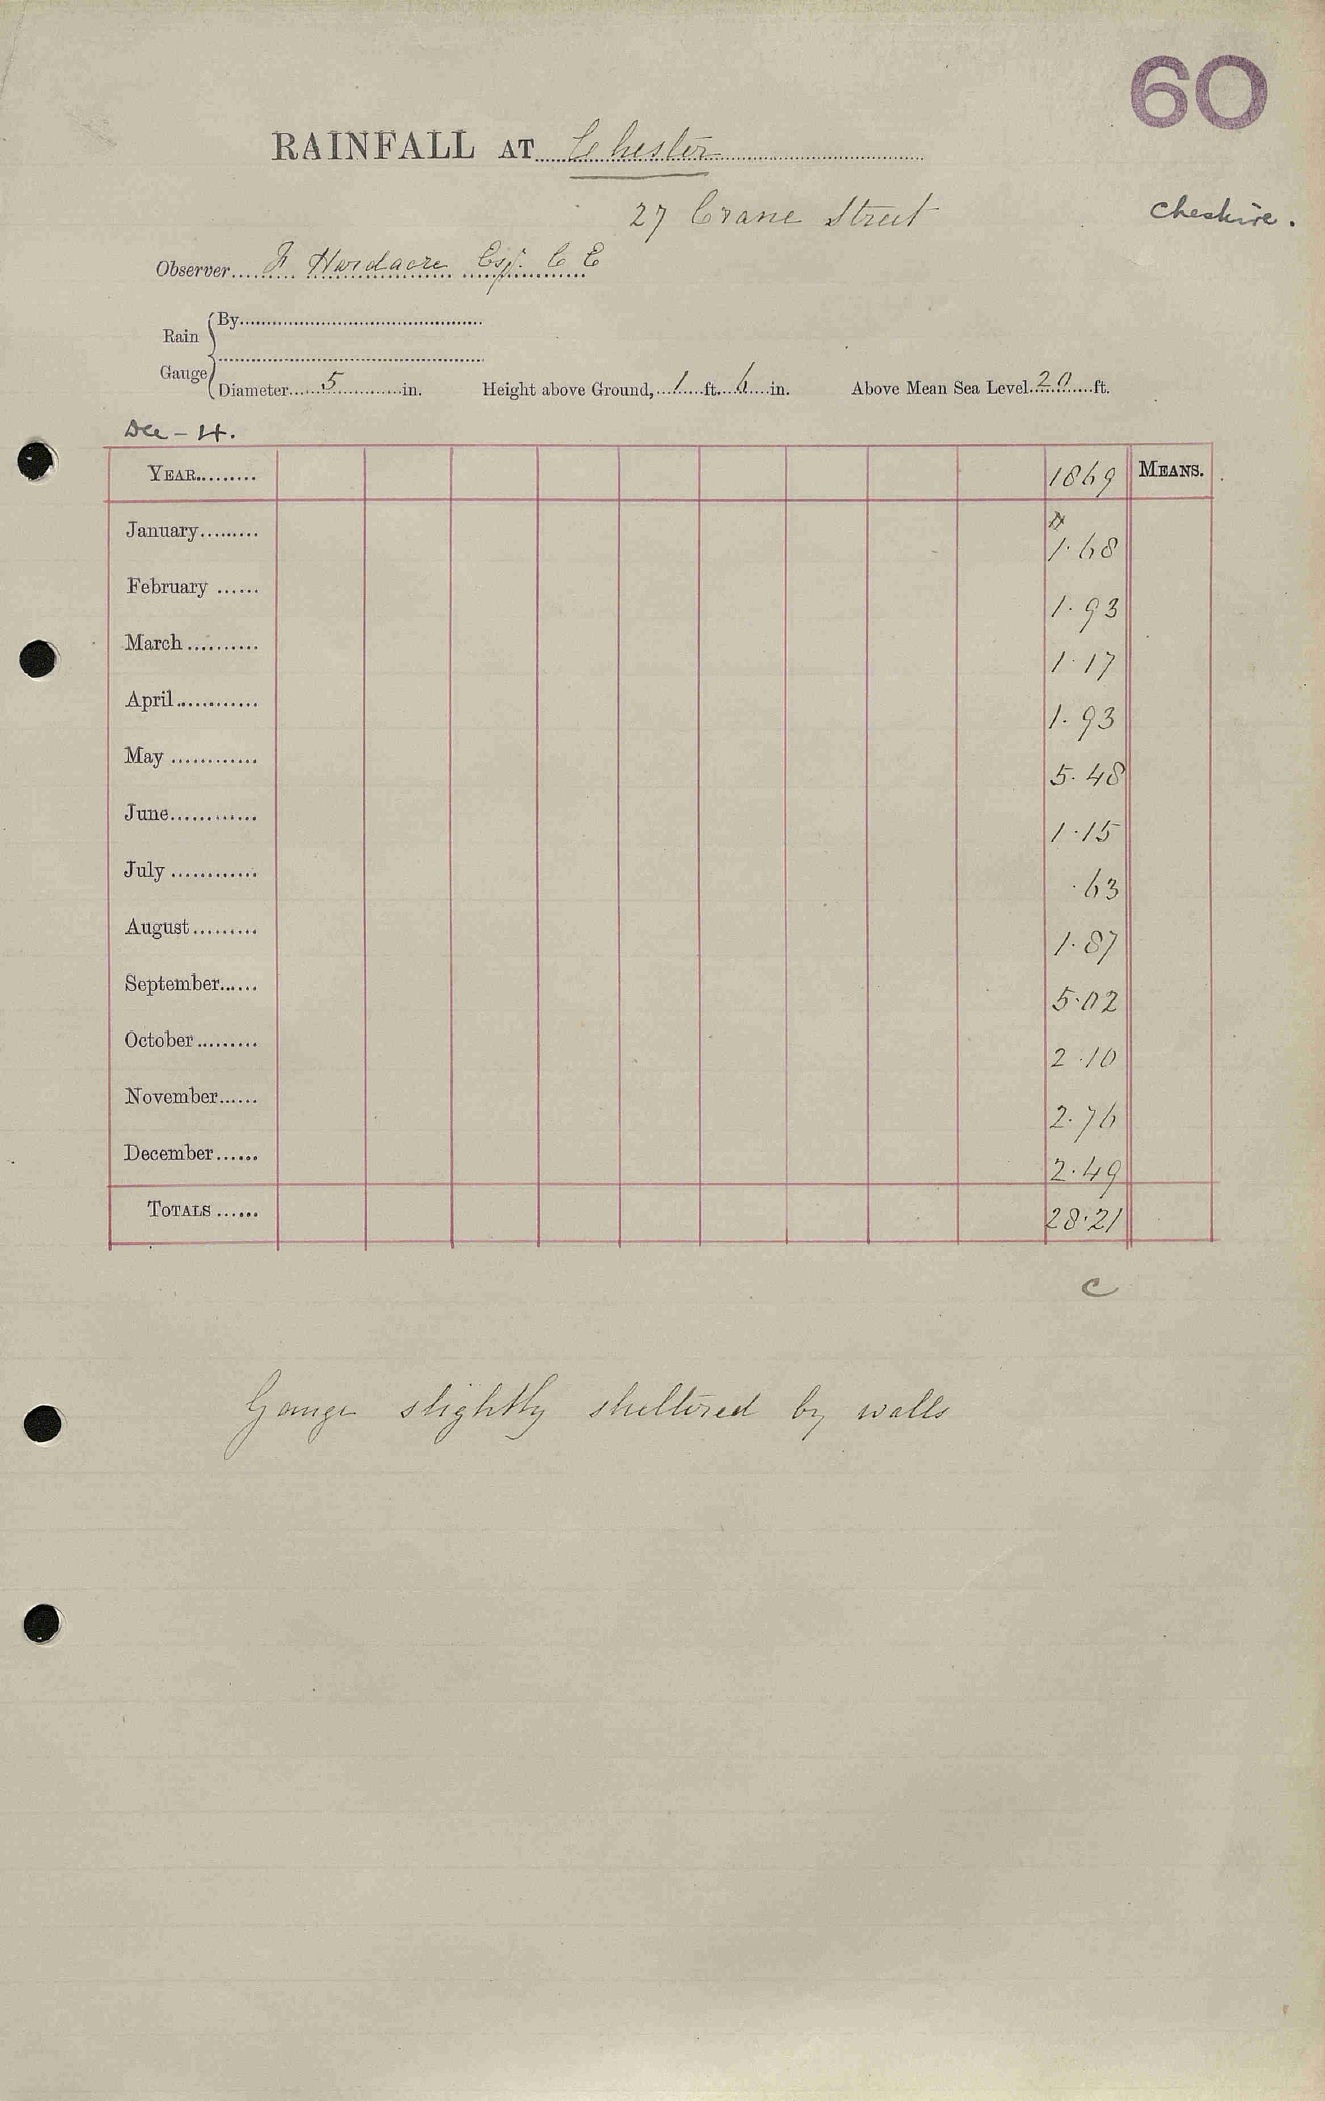 60
RAINFALL AT Chester
27 Crane Street
Cheshire.
Observer F Hardacre Esq. C E
Rain Gauge
By
Diameter 5 in. Height above Ground, 1 ft. 6 in. Above Mean Sea Level 20 ft.
Dec - 14.
YEAR 1869 MEANS.
January 1.68
February 1.93
March 1.17
April 1.93
May 5.48
June 1.15
July .63
August 1.87
September 5.02
October 2.10
November 2.76
December 2.49
TOTALS 28.21
C
Gauge slightly sheltered by walls